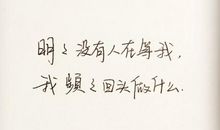 明々没有人在等我，
我频々回头做什么.